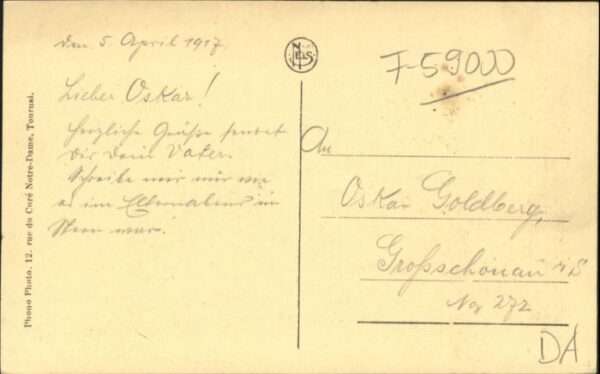 den 5. April 1917.
Lieber Oskar!
Herzliche Grüße sendet
Dir Dein Vater.
Schreibe mir nur wie
es im Elternabend in
war.
Phono Photo, 12, rue du Curé Notre-Dame, Tournai.
NELS
F-59000
An
Oskar Goldberg,
Großschönau i/S
No 272
DA